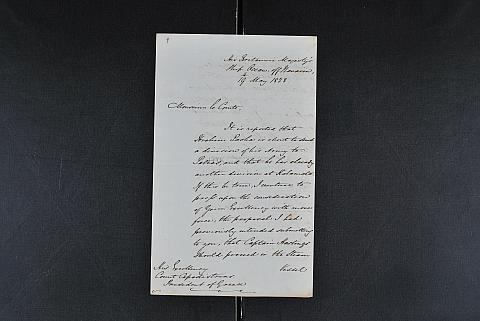 His Britannic Majesty's
Ship Ocean, off Navarin,
19 May 1828
Monsieur le Comte,
It is reported that
Ibrahim Pasha is about to send
a division of his Army to
Patras, and that he has already
another division at Kalamata
If this be true, I venture to
press upon the consideration
of Your Excellency with more
force, the proposal I had
previously intended submitting
to you, that Captain Hastings
should proceed in the Steam
Vessel
His Excellency
Count Capodistrias
President of Greece